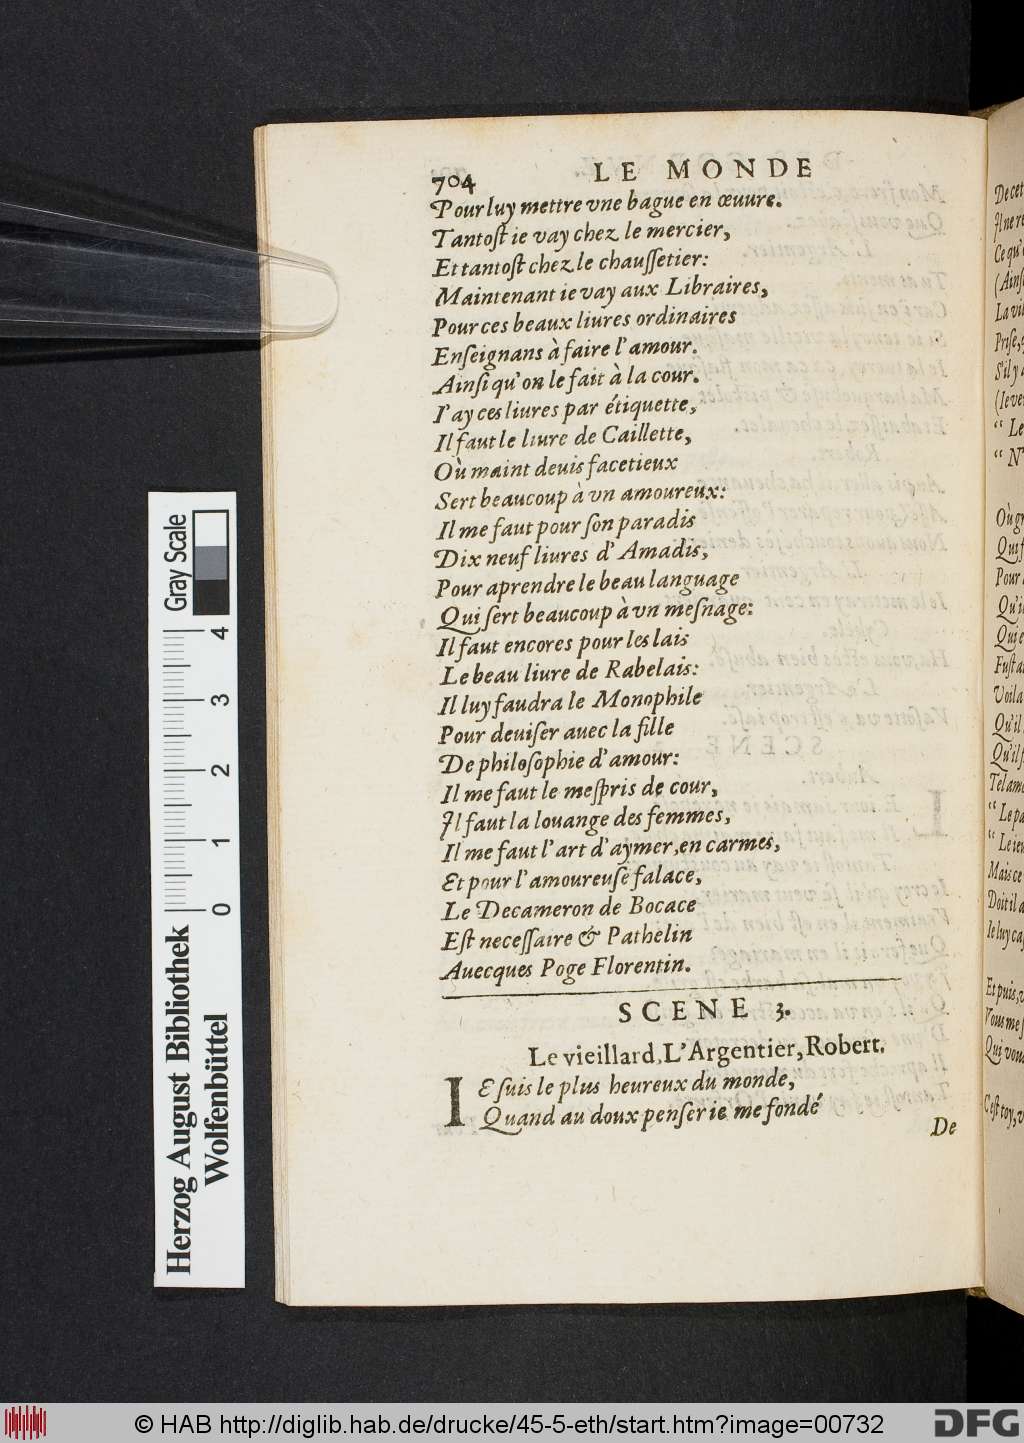 704 LE MONDE
Pour luy mettre vne bague en œuure.
Tantoſt ie vay chez le mercier,
Et tantoſt chez le chauſſetier:
Maintenant ie vay aux Libraires,
Pour ces beaux liures ordinaires
Enſeignans à faire l'amour.
Ainſi qu'on le fait à la cour.
I'ay ces liures par étiquette,
Il faut le liure de Caillette,
Où maint deuis facetieux
Sert beaucoup à vn amoureux:
Il me faut pour ſon paradis
Dix neuf liures d'Amadis,
Pour aprendre le beau language
Qui ſert beaucoup à vn meſnage:
Il faut encores pour les lais
Le beau liure de Rabelais:
Il luy faudra le Monophile
Pour deuiſer auec la fille
De philoſophie d'amour:
Il me faut le meſpris de cour,
Il faut la louange des femmes,
Il me faut l'art d'aymer, en carmes,
Et pour l'amoureuſe falace,
Le Decameron de Bocace
Eſt neceſſaire & Pathelin
Auecques Poge Florentin.
SCENE 3.
Le vieillard, L'Argentier, Robert.
IE ſuis le plus heureux du monde,
Quand au doux penſer ie me fondé
De
De cet
Il ne re
Ce qu'
(Ainſ
La vil
Priſe,
S'il y a
(Ie ve
“ Le
“ N'
Qui ſ
Pour
Qu'i
Qui e
Fuſt a
Voila
Qu'il
Qu'il ſ
Tel amo
“ Le pa
“ Le ieu
Mais ce
Doit il a
Ie luy ca
Et puis, v
Vous me ſ
Qui vou
C'eſt toy, v
Gray Scale
4
3
2
1
0
Herzog August Bibliothek
Wolfenbüttel
© HAB http://diglib.hab.de/drucke/45-5-eth/start.htm?image=00732
DFG